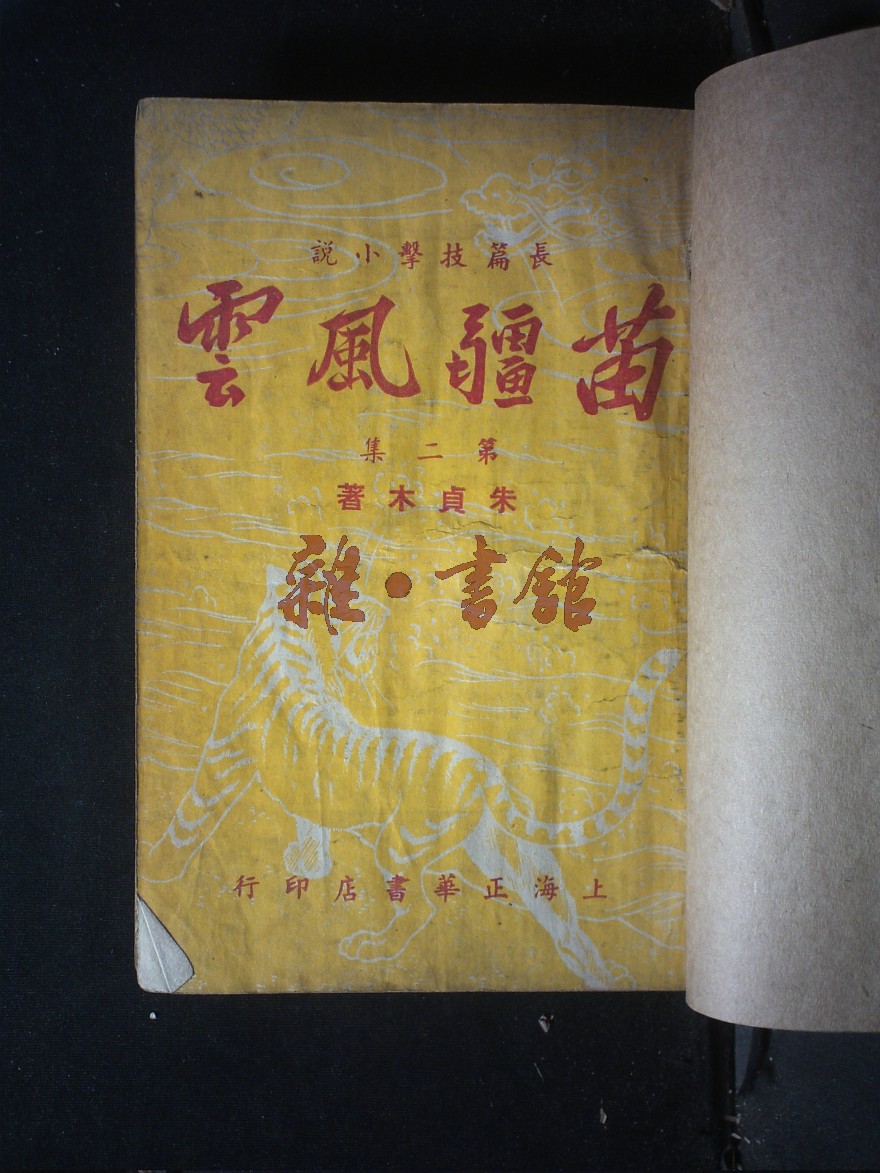 長篇技擊小説
苗疆風雲
第二集
朱貞木著
雜·書館
上海正華書店印行